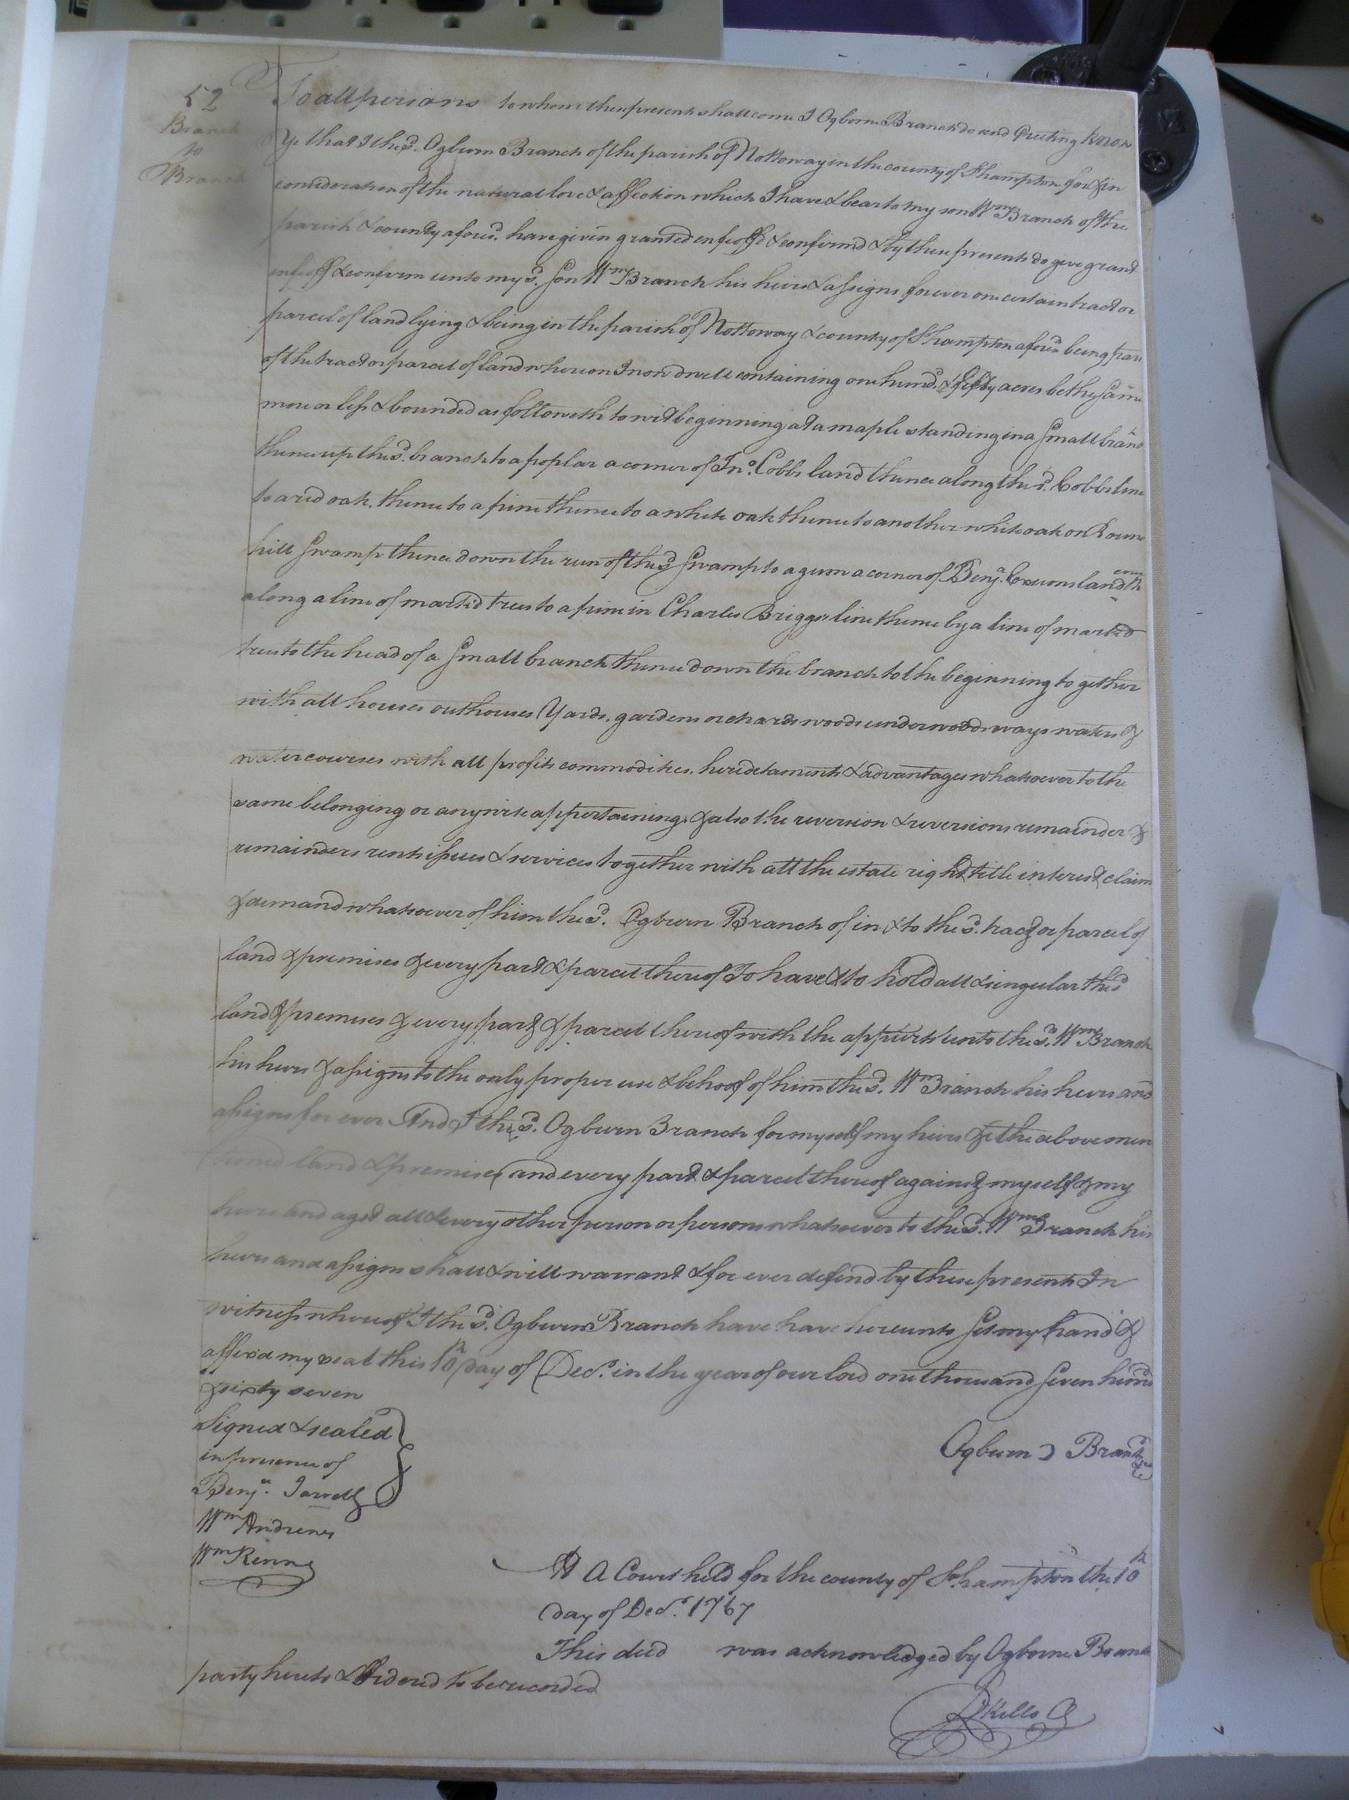 52
Branch
to
Branch
To all persons to whom these presents shall come I Ogborn Branch do send Greeting Know
Ye that I the sd. Ogburn Branch of the parish of Nottoway in the county of Shampton for & in
consideration of the natural love & affection which I have & bear to my son Wm Branch of the
parish & county aforesd. have given granted enfeoff'd & confirmd & by these presents do give grant
enfeoff & confirm unto my sd. Son Wm Branch his heirs & assigns forever one certain tract or
parcel of land lying & being in the parish of Nottoway & county of Shampton aforesd being part
of the tract or parcel of land whereon I now dwell containing one hund. & fifty acres be the same
more or less & bounded as followeth to wit beginning at a maple standing in a Small branch
thence up the sd. branch to a poplar a corner of Jno. Cobbs land thence along the sd. Cobbs line
to a red oak, thence to a pine thence to a white oak thence to another white oak on Round
hill Swamp thence down the run of the sd Swamp to a gum a corner of Benja. Exums land thence
along a line of mark'd trees to a pine in Charles Briggs's line thence by a line of marked
trees to the head of a Small branch thence down the branch to the beginning together
with all houses outhouses Yards, gardens orchards woods underwoods ways waters &
watercourses with all profits commodities, heridetaments & advantages whatsoever to the
same belonging or anywise appertaining, & also the reversion & reversions remainder &
remainders rents issues & services together with all the estate right title interest claim
& demand whatsoever of him the sd. Ogburn Branch of in & to the sd. tract or parcel of
land & premises & every part & parcel thereof To have & to hold all & singular the sd
land & premises & every part & parcel thereof with the appurts unto the sd. Wm Branch
his heirs & assigns to the only proper use & behoof of him the sd. Wm Branch his heirs and
assigns for ever And I the sd. Ogburn Branch for myself my heirs &c the above men
tioned land & premises and every part & parcel thereof against myself & my
heirs and agst all & every other person or persons whatsoever to the sd. Wm Branch his
heirs and assigns shall & will warrant & for ever defend by these presents In
witness whereof I the sd. Ogburn Branch have have hereunto Set my hand &
affixd my seal this 10th day of Decr. in the year of our lord one thousand Seven hundd
& sixty seven
Signed & sealed
in presence of
Benja. Jarrell
Wm Andrews
Wm Kinn
Ogburn Branch
At A Court held for the county of Shampton the 10th
day of Decr. 1767
This deed was acknowledged by Ogborne Branch
party hereto & Ordered to be recorded
Kello